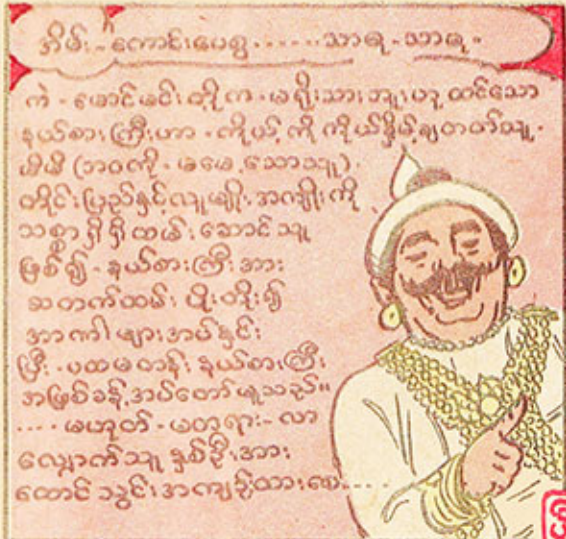 အိမ်း - ကောင်းပေစွ ...... သာဓု - သာဓု -
ကဲ - မောင်မင်းတို့က - မရိုးသားဘူးဟု ထင်သော
နယ်စားကြီးဟာ - ကိုယ့်ကိုကိုယ်နှိမ့်ချတတ်သူ -
မိမိ (ဘဝကို - မမေ့သောသူ) -
တိုင်းပြည်နှင့်လူမျိုးအကျိုးကို
သစ္စာရှိရှိထမ်းဆောင်သူ
ဖြစ်၍ - နယ်စားကြီးအား
ဆတက်ထမ်းပိုးတိုး၍
အာဏါများအပ်နှင်း
ပြီး - ပထမတန်းနယ်စားကြီး
အဖြစ်ခန့်အပ်တော်မူသည်။
.... မဟုတ် - မတရား - လာ
လျှောက်သူနှစ်ဦးအား
ထောင်သွင်းအကျဉ်းထားစေ....